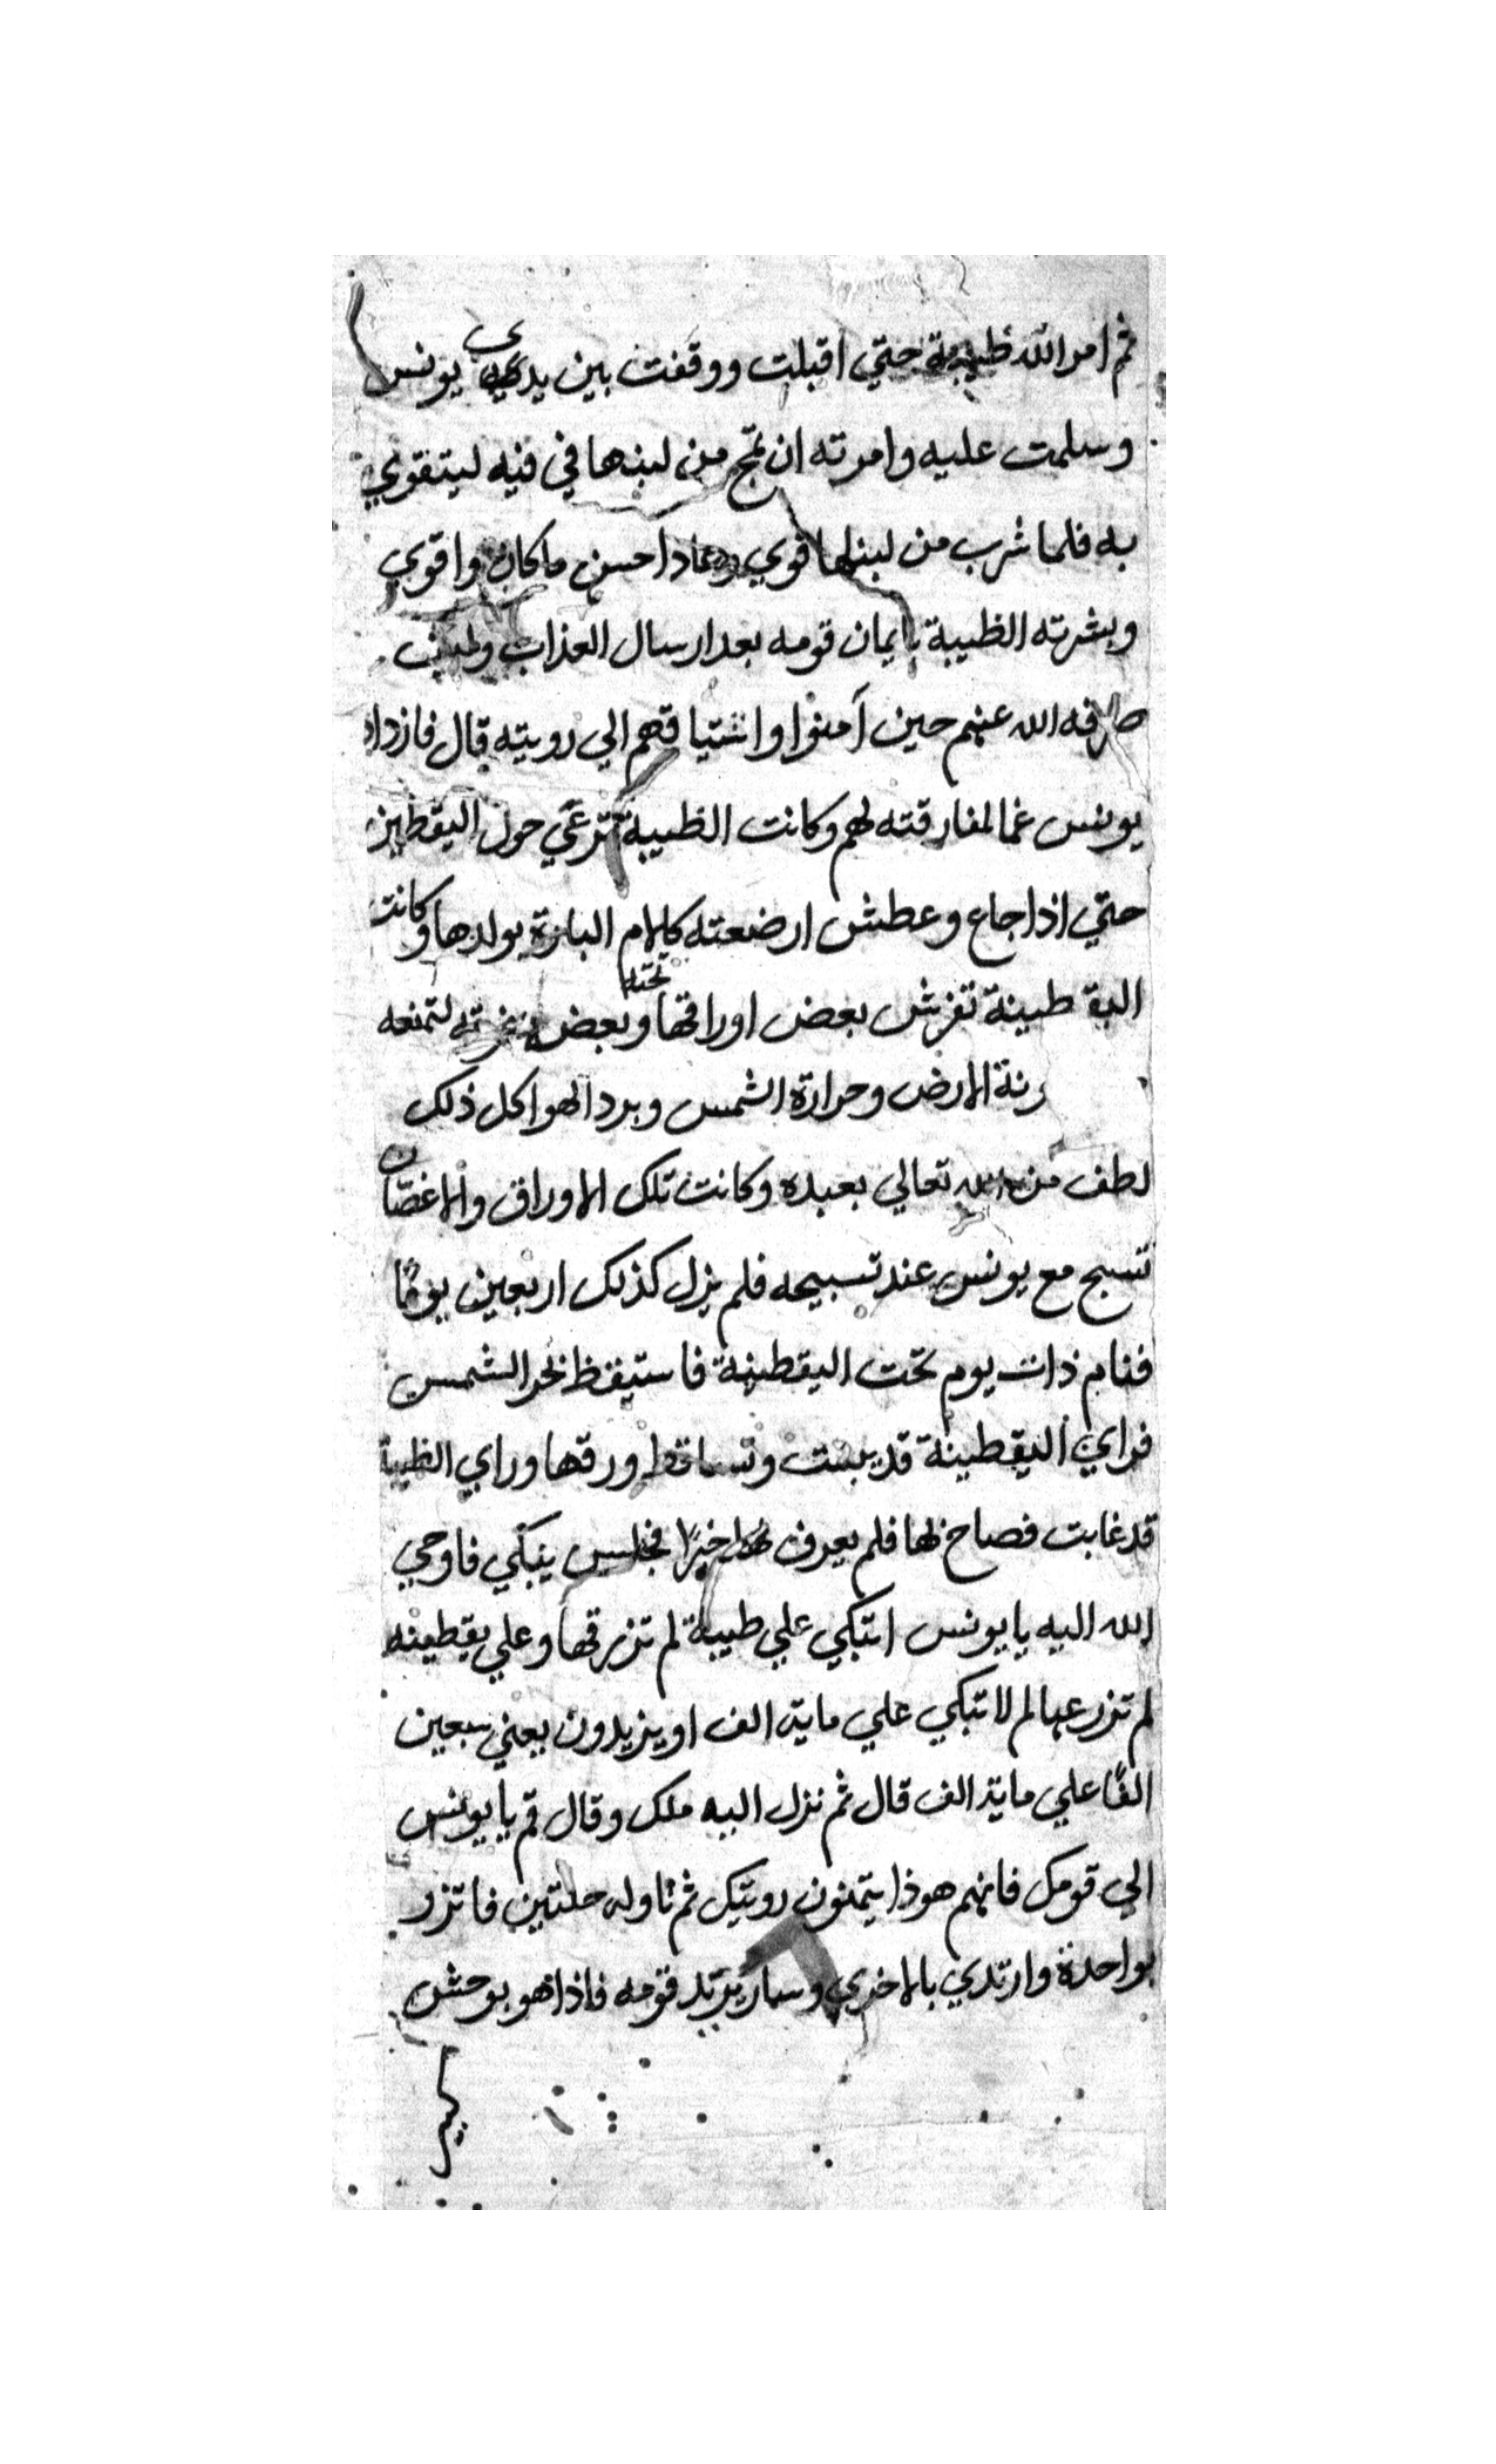 ثم امر الله ظبية حتي اقبلت ووقفت بين يدي يونس
وسلمت عليه وامرته ان تمج من لبنها في فيه ليتقوي
به فلما شرب من لبنها قوي وعاد احسن ما كان واقوي
وبشرته الظبية بايمان قومه بعد ارسال العذاب وكيف
صرفه الله عنهم حين آمنوا واشتياقهم الي رويته قال فازداد
يونس غما لمفارقته لهم وكانت الظبية ترعي حول اليقطين
حتي اذا جاع وعطش ارضعته كالام البارة بولدها وكانت
اليقطينة تفرش بعض اوراقها تحته وبعض لتمنعه
الارض وحرارة الشمس وبرد الهوا كل ذلك
لطف من الله تعالي بعبده وكانت تلك الاوراق والاغصان
تسبح مع يونس عند تسبيحه فلم يزل كذلك اربعين يومًا
فنام ذات يوم تحت اليقطينة فاستيقظ لحر الشمس
فراي اليقطينة قد يبست وتساقط ورقها وراي الظبية
قد غابت فصاح لها فلم يعرف لها خبرًا فجلس يبكي فاوحي
الله اليه يا يونس اتبكي علي ظبية لم ترزقها وعلي يقطينه
لم تزرعها لم لا تبكي علي ماية الف او يزيدون يعني سبعين
الفًا علي ماية الف قال ثم نزل اليه ملك وقال قم يا يونس
الي قومك فانهم هوذا يتمنون رويتك ثم ناوله حلتين فاتزر
بواحدة وارتدي بالاخري وسار يريد قومه فاذا هو بوحش